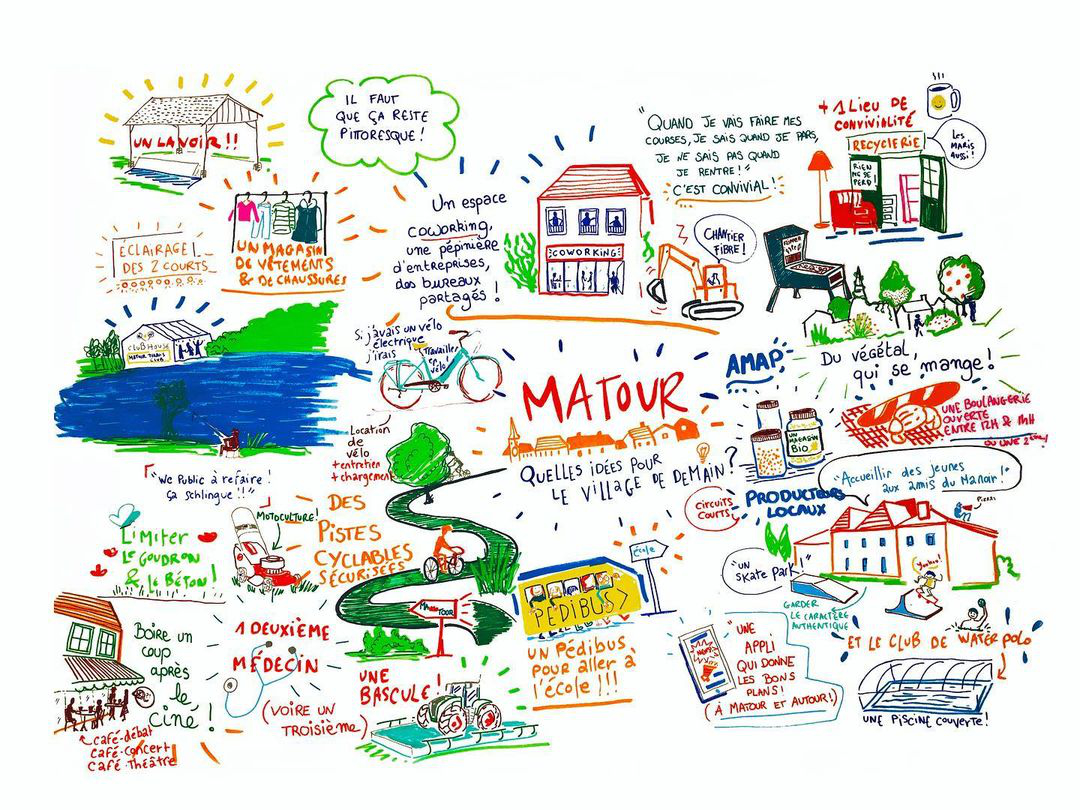 UN LAVOIR !!
IL FAUT
QUE ÇA RESTE
PITTORESQUE !
ÉCLAIRAGE
DES 2 COURTS
UN MAGASIN
DE VÊTEMENTS
& DE CHAUSSURES
Un espace
coworking,
une pépinière
d'entreprises,
des bureaux
partagés !
COWORKING
"QUAND JE VAIS FAIRE MES
COURSES, JE SAIS QUAND JE PARS,
JE NE SAIS PAS QUAND
JE RENTRE !"
C'EST CONVIVIAL !
CHANTIER
FIBRE !
+ 1 LIEU DE
CONVIVIALITÉ
RECYCLERIE
RIEN
NE SE
PERD !
LES
MARIS
AUSSI !
CLUB HOUSE
MATOUR TENNIS
CLUB
Si j'avais un vélo
électrique
j'irais
Travailler
en
vélo !
Location
de
vélo
+ entretien
+ chargement
MATOUR
QUELLES IDÉES POUR
LE VILLAGE DE DEMAIN ?
AMAP
Du végétal,
qui se mange !
UN
MAGASIN
BIO
UNE BOULANGERIE
OUVERTE
ENTRE 12H & 14H
OU UNE 2ème !
PRODUCTEURS
LOCAUX
CIRCUITS
COURTS
"Accueillir des jeunes
aux amis du Manoir !"
PIERRE
"WC Public à refaire !
ça schlingue !!"
LiMiTER
LE GOUDRON
& le BÉTON !
MOTOCULTURE !
DES
PISTES
CYCLABLES
SÉCURISÉES
MATOUR
école
PÉDIBUS >
UN PÉDIBUS
POUR ALLER À
l'école !!!
"UN
SKATE PARK"
GARDER
LE CARACTÈRE
AUTHENTIQUE
ET LE CLUB DE WATER POLO
UNE PISCINE COUVERTE !
"UNE
APPLI
QUI DONNE
LES BONS
PLANS !
(À MATOUR ET AUTOUR !)
Boire un
coup
après
le
Ciné !
CAFÉ-DÉBAT
CAFÉ-CONCERT
CAFÉ-THÉÂTRE
1 DEUXIÈME
MÉDECIN
(VOIRE UN
TROISIÈME)
UNE
BASCULE !